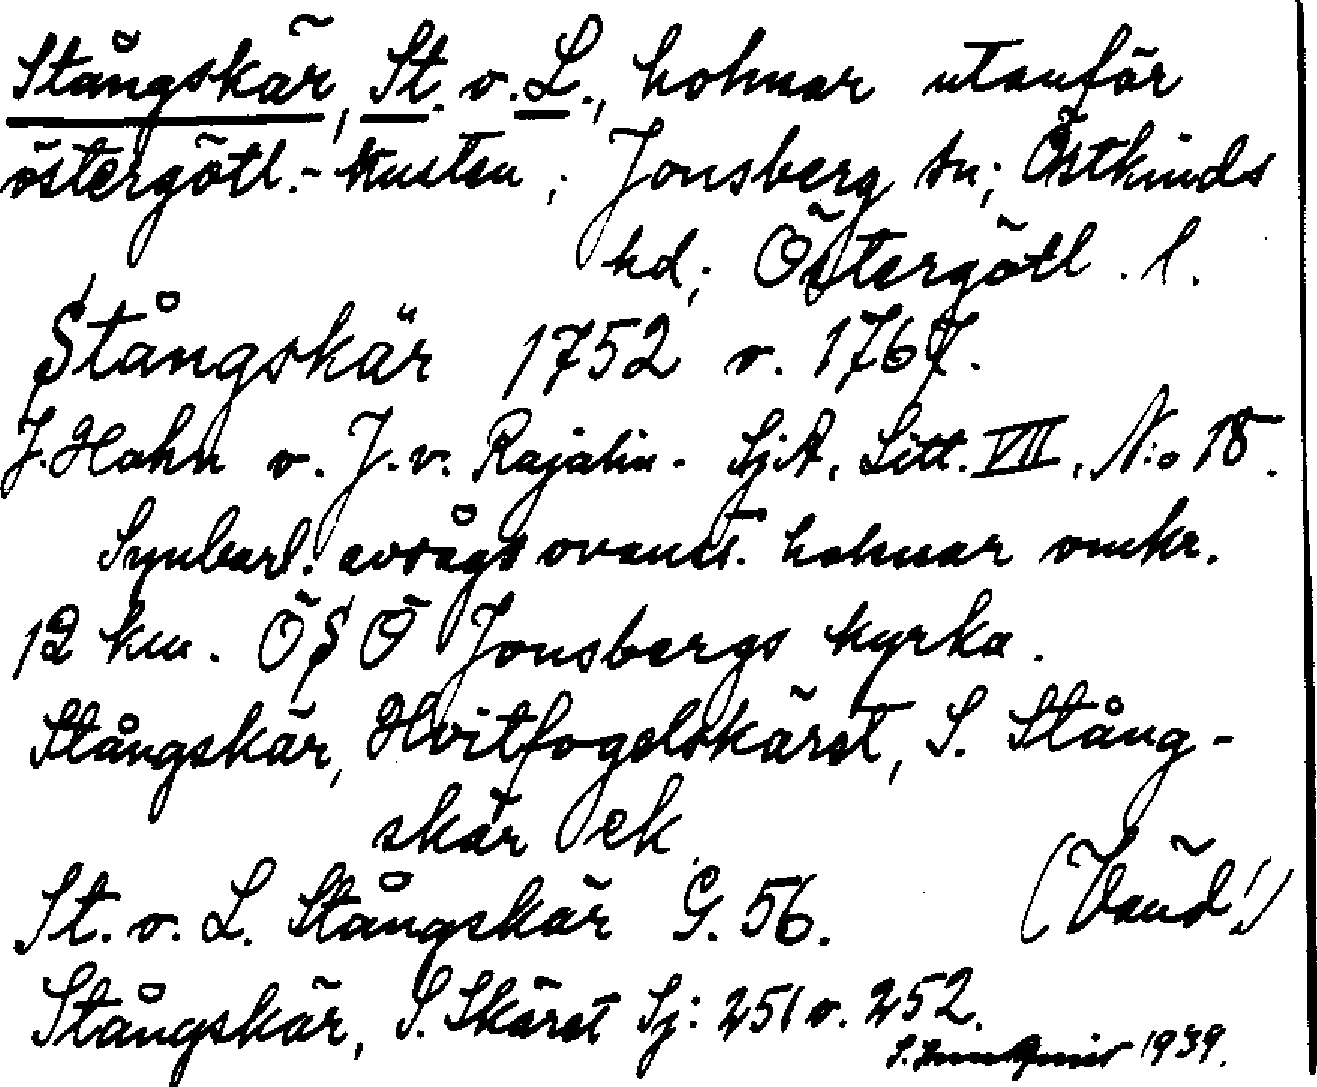 Stångskär, St. o. L., holmar utanför
östergötl.-kusten; Jonsberg sn; Östkinds
hd; Östergötl. l.
Stångskär 1752 o. 1767.
J. Hahn o. J. v. Rajalin. SjA, Litt. VII, N:o 18.
Synbarl. avsågs ovanst. holmar omkr.
12 km. ÖSÖ Jonsbergs kyrka.
Stångskär, Hvitfogelskäret, S. Stång-
skär ek
St. o. L. Stångskär G. 56. (Vänd!)
Stångskär, S. Skäret Sj: 251 o. 252.
1939.